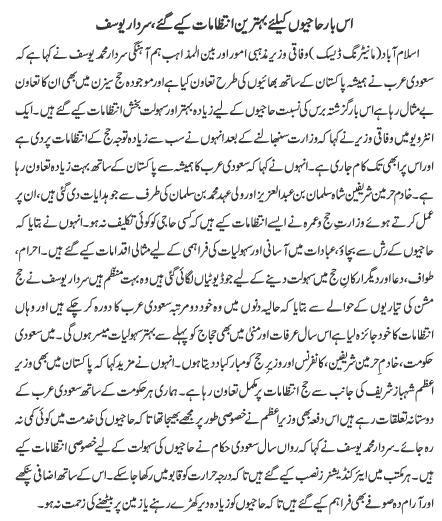 اس بار حاجیوں کیلئے بہترین انتظامات کیے گئے، سردار یوسف
اسلام آباد (مانیٹرنگ ڈیسک) وفاقی وزیر مذہبی امور اور بین المذاہب ہم آہنگی سردار محمد یوسف نے کہا ہے کہ
سعودی عرب نے ہمیشہ پاکستان کے ساتھ بھائیوں کی طرح تعاون کیا ہے اور موجودہ حج سیزن میں بھی ان کا تعاون
بے مثال رہا ہے اس بار گزشتہ برس کی نسبت حاجیوں کے لیے زیادہ بہتر اور سہولت بخش انتظامات کیے گئے ہیں۔ ایک
انٹرویو میں وفاقی وزیر نے کہا کہ وزارت سنبھالنے کے بعد انہوں نے سب سے زیادہ توجہ حج کے انتظامات پر دی ہے
اور اس پر ابھی تک کام جاری ہے۔ انہوں نے کہا کہ سعودی عرب کا ہمیشہ سے پاکستان کے ساتھ بہت زیادہ تعاون رہا
ہے۔ خادم حرمین شریفین شاہ سلمان بن عبدالعزیز اور ولی عہد محمد بن سلمان کی طرف سے جو ہدایات دی گئی ہیں، ان پر
عمل کرتے ہوئے وزارت حج و عمرہ نے ایسے انتظامات کیے ہیں کہ کسی حاجی کو کوئی تکلیف نہ ہو۔ انہوں نے بتایا کہ
حاجیوں کے رش سے بچاؤ، عبادات میں آسانی اور سہولیات کی فراہمی کے لیے مثالی اقدامات کیے گئے ہیں۔ احرام،
طواف، دعا اور دیگر ارکان حج میں سہولت دینے کے لیے جو ڈیوٹیاں لگائی گئی ہیں وہ بہت منظم ہیں سردار یوسف نے حج
مشن کی تیاریوں کے حوالے سے بتایا کہ حالیہ دنوں میں وہ خود دو مرتبہ سعودی عرب کا دورہ کر چکے ہیں اور وہاں
انتظامات کا خود جائزہ لیا ہے اس سال عرفات اور منیٰ میں بھی حجاج کو پہلے سے بہتر سہولیات میسر ہوں گی۔ میں سعودی
حکومت، خادم حرمین شریفین، کانفرنس اور وزیر حج کو مبارکباد دیتا ہوں۔ انہوں نے مزید کہا کہ پاکستان میں بھی وزیر
اعظم شہباز شریف کی جانب سے حج انتظامات پر مکمل تعاون رہا ہے۔ ہماری ہر حکومت کے ساتھ سعودی عرب کے
دوستانہ تعلقات رہے ہیں اس دفعہ بھی وزیر اعظم نے خصوصی طور پر مجھے بھیجا تھا تاکہ حاجیوں کی خدمت میں کوئی کمی نہ
رہ جائے۔ سردار محمد یوسف نے کہا کہ رواں سال سعودی حکام نے حاجیوں کی سہولت کے لیے خصوصی انتظامات کیے
ہیں۔ ہر مکتب میں ایئر کنڈیشنرز نصب کیے گئے ہیں تاکہ درجہ حرارت کو قابو میں رکھا جا سکے۔ اس کے ساتھ اضافی پنکھے
اور آرام دہ صوفے بھی فراہم کیے گئے ہیں تاکہ حاجیوں کو زیادہ دیر کھڑے رہنے یا زمین پر بیٹھنے کی زحمت نہ ہو۔